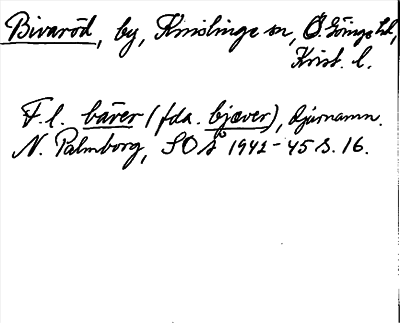 Bivaröd, by, Knislinge sn, Ö. Göinge hd,
Krist. l.
F. l. bäver (fda. bjæver), djurnamn.
N. Palmborg, SOÅ 1942-45 s. 16.